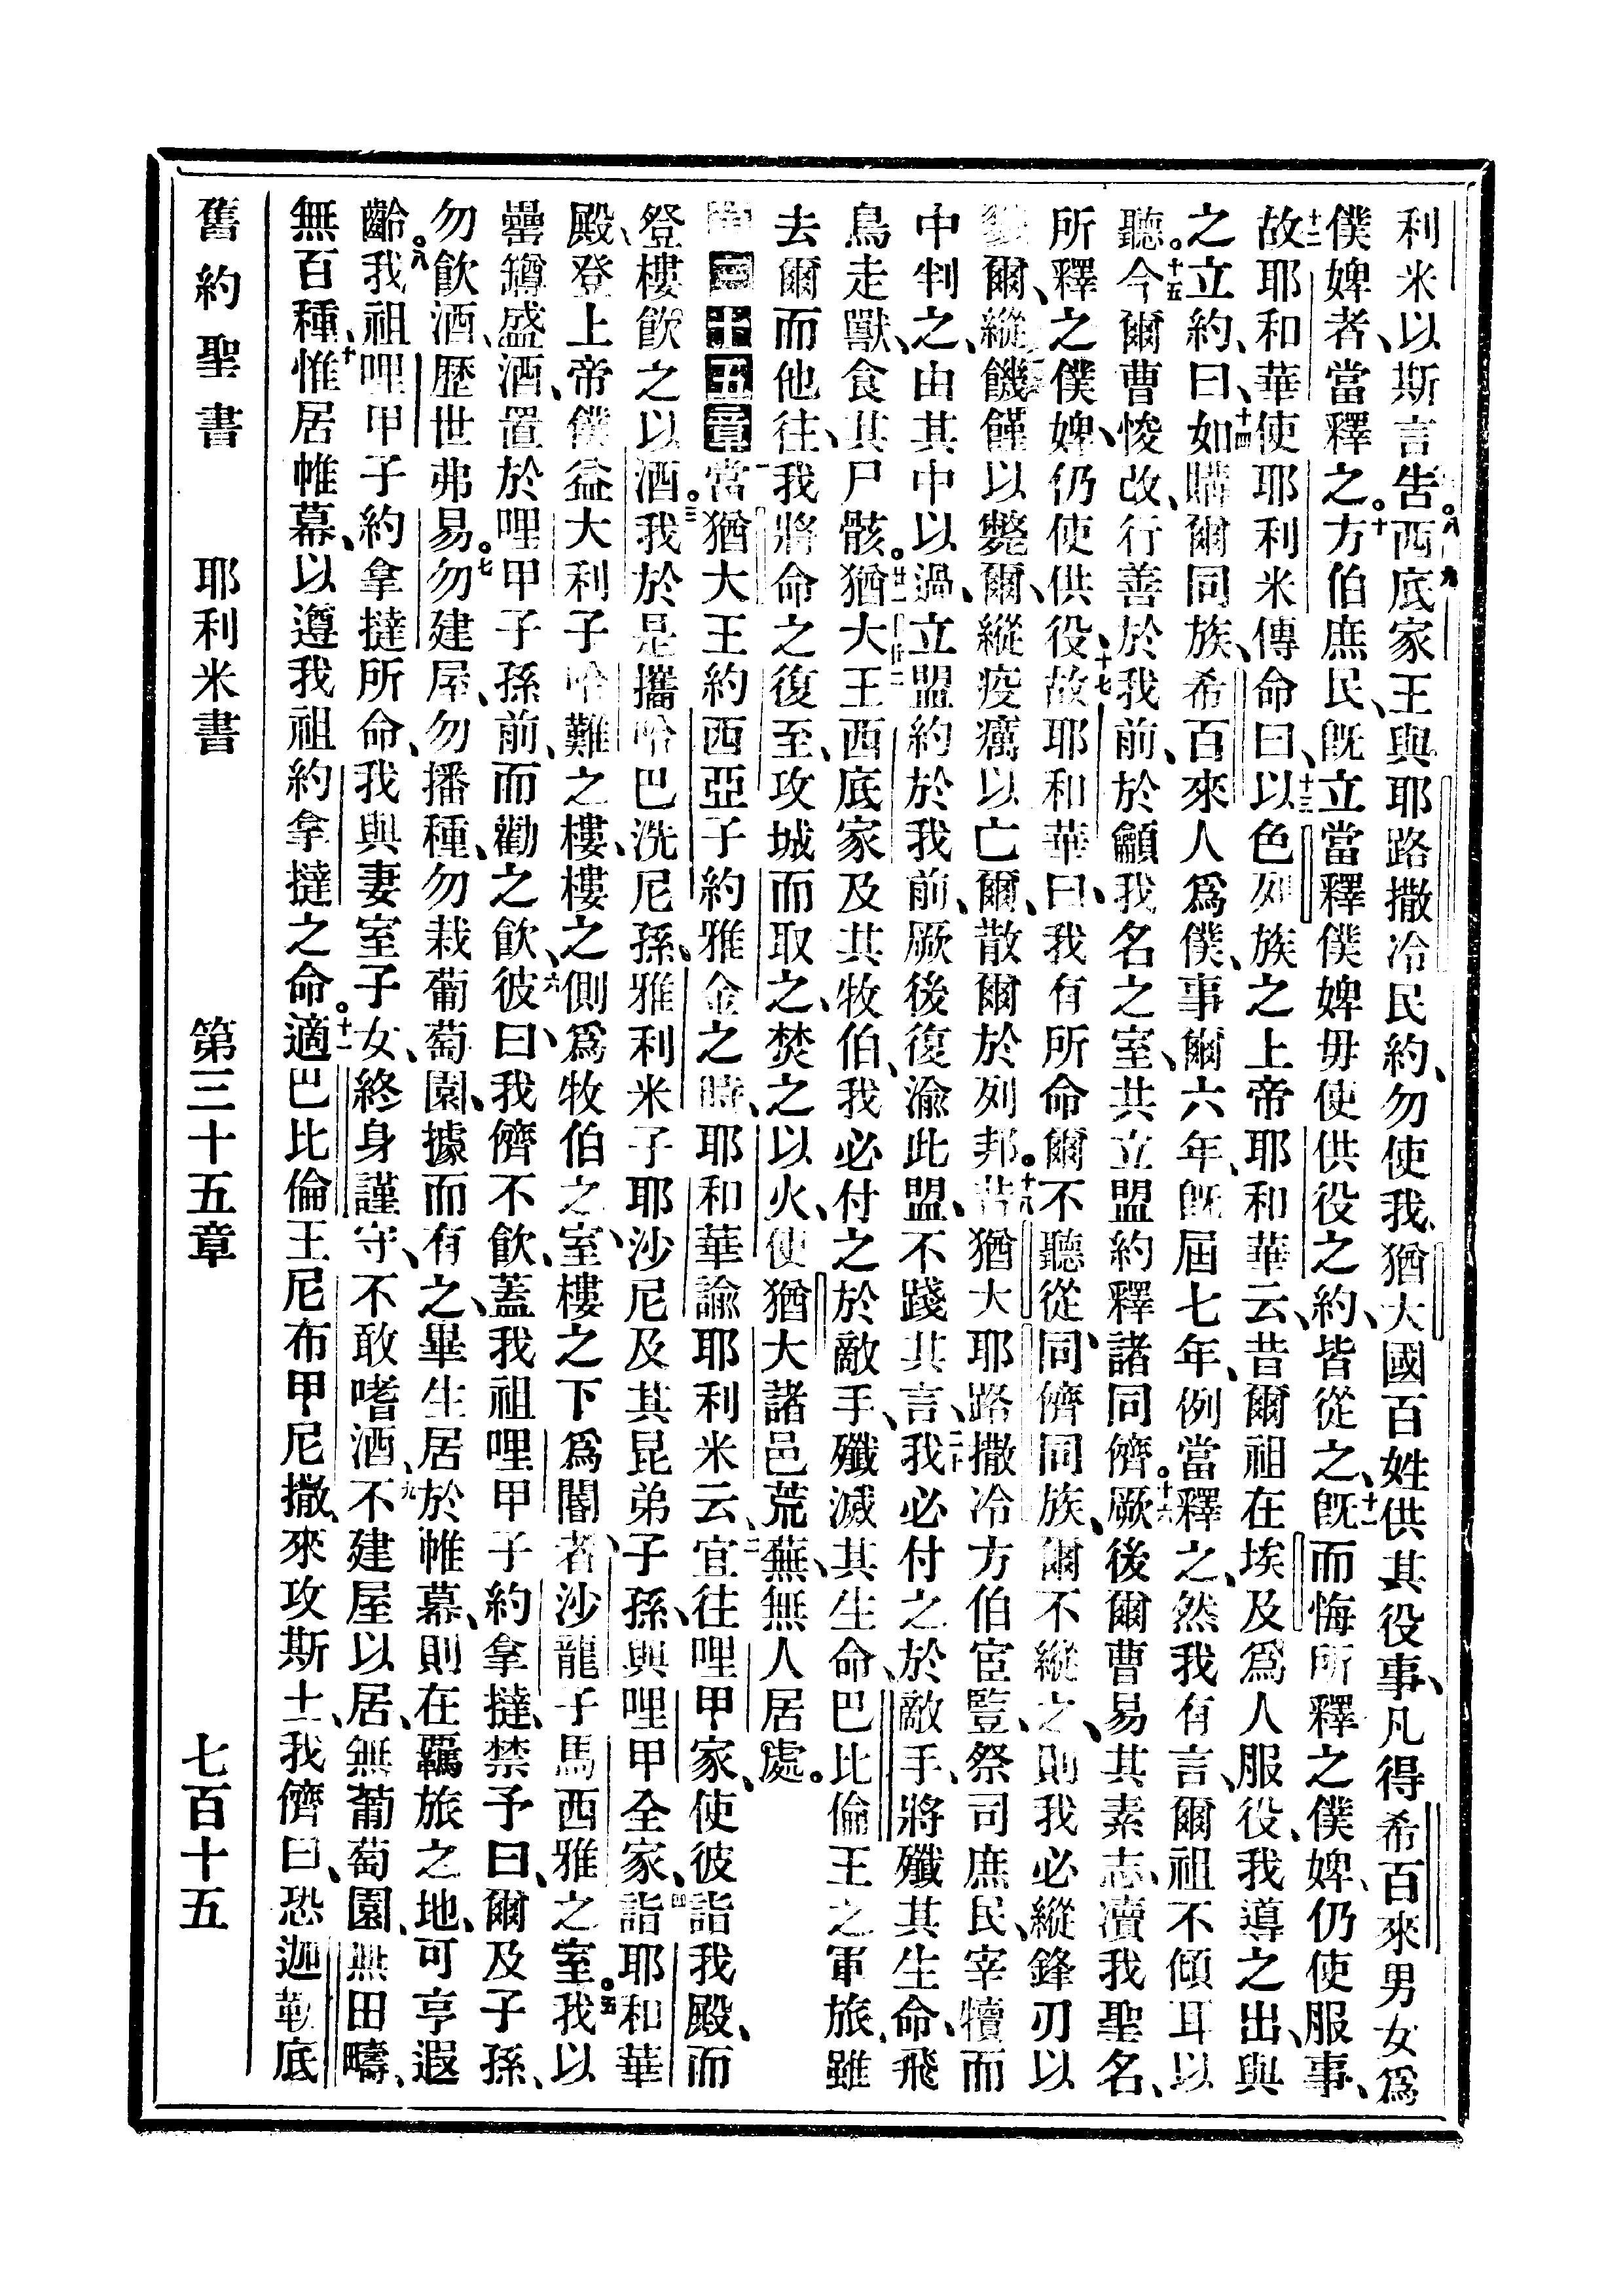 利米以斯言告。八西底家九王與耶路撒冷民約、勿使我猶大國百姓供其役事、凡得希百來男女爲
僕婢者、當釋之。十方伯庶民、既立當釋僕婢毋使供役之約、皆從之、十一既而悔所釋之僕婢、仍使服事、
十二故耶和華使耶利米傳命曰、十三以色列族之上帝耶和華云、昔爾祖在埃及爲人服役、我導之出、與
之立約、曰、十四如購爾同族、希百來人爲僕、事爾六年、既屆七年、例當釋之、然我有言、爾祖不傾耳以
聽。十五今爾曹悛改、行善於我前、於籲我名之室、共立盟約釋諸同儕。十六厥後爾曹易其素志、瀆我聖名、
所釋之僕婢、仍使供役、十七故耶和華曰、我有所命爾不聽從、同儕同族、爾不縱之、則我必縱鋒刃以
爾、縱饑饉以斃爾、縱疫癘以亡爾、散爾於列邦。十八昔猶大耶路撒冷方伯宦豎、祭司庶民、宰犢而
中判之、由其中以過、立盟約於我前、厥後復渝此盟、不踐其言、二十我必付之於敵手、將殲其生命、飛
鳥走獸、食其尸骸。廿一猶大王西底家及其牧伯、我必付之於敵手、殲滅其生命、巴比倫王之軍旅、雖
去爾而他往、廿二我將命之復至、攻城而取之、焚之以火、使猶大諸邑荒蕪、無人居處。
第三十五章一當猶大王約西亞子約雅金之時、耶和華諭耶利米云、二宜往哩甲家、使彼詣我殿、而
登樓飲之以酒。三我於是攜哈巴洗尼孫、雅利米子耶沙尼及其昆弟子孫、與哩甲全家、四詣耶和華
殿、登上帝僕益大利子哈難之樓、樓之側爲牧伯之室、樓之下爲閽者沙龍子馬西雅之室。五我以
罍罇盛酒、置於哩甲子孫前、而勸之飲、六彼曰、我儕不飲、蓋我祖哩甲子約拿撻、禁予曰、爾及子孫、
勿飲酒、歷世弗易。七勿建屋、勿播種、勿栽葡萄園、據而有之、畢生居於帷幕、則在羈旅之地、可享遐
齡。八我祖哩甲子約拿撻所命、我與妻室子女、終身謹守、不敢嗜酒、九不建屋以居、無葡萄園、無田疇、
無百種、十惟居帷幕、以遵我祖約拿撻之命。十一適巴比倫王尼布甲尼撒、來攻斯土、我儕曰、恐迦勒底
舊約聖書 耶利米書 第三十五章 七百十五